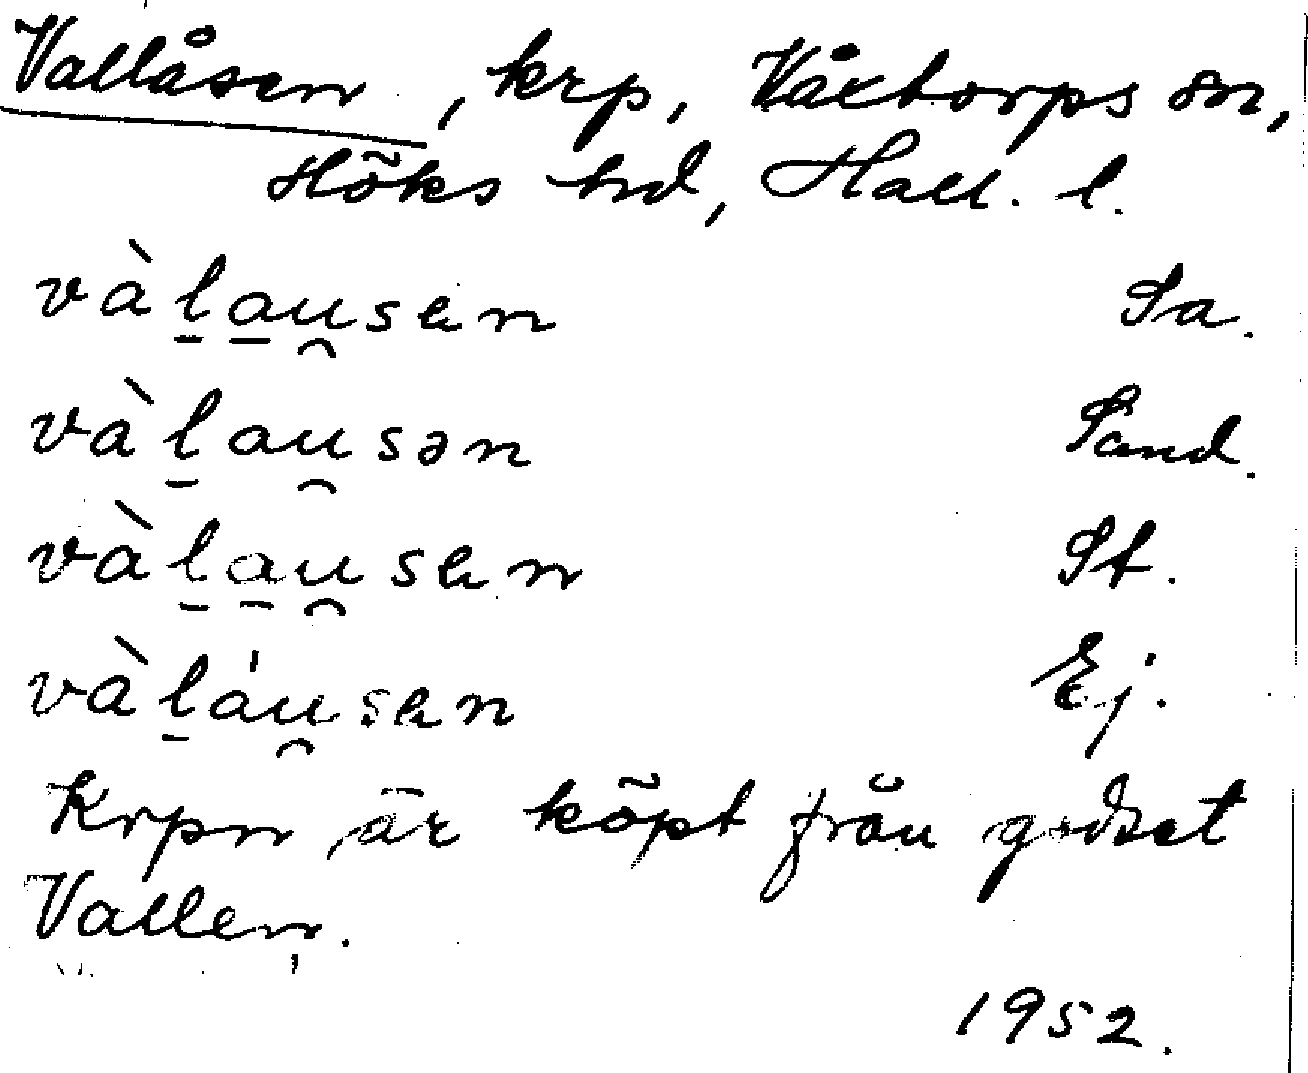 Vallåsen, krp, Våxtorps sn,
Höks hd, Hall. l.
vàl̠a̠u̯sen Sa.
vàl̠au̯sən Sand.
vàl̠a̠u̯sen St.
vàl̠áu̯sen Ej.
Krpn är köpt från godset
Vallen.
1952.